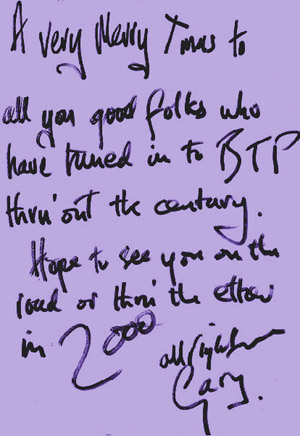 A very Merry Xmas to
all you good folks who
have tuned in to BTP
thru'out the century.
Hope to see you on the
road or thru' the ether
in 2000
all right
Gary.